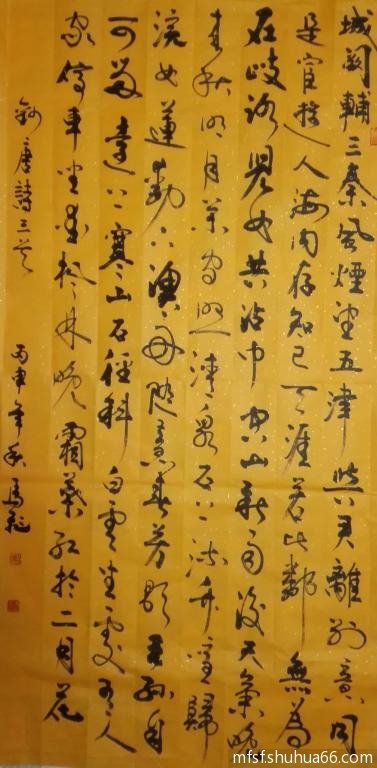 城闕輔三秦風煙望五津與君離別意同
是宦遊人海內存知己天涯若比鄰無為
在歧路兒女共沾巾空山新雨後天氣晚
來秋明月松間照清泉石上流竹喧歸
浣女蓮動下漁舟隨意春芳歇王孫自
可留遠上寒山石徑斜白雲生處有人
家停車坐愛楓林晚霜葉紅於二月花
錄唐詩三首
丙申年秋馬
mfsfshuhua66.com